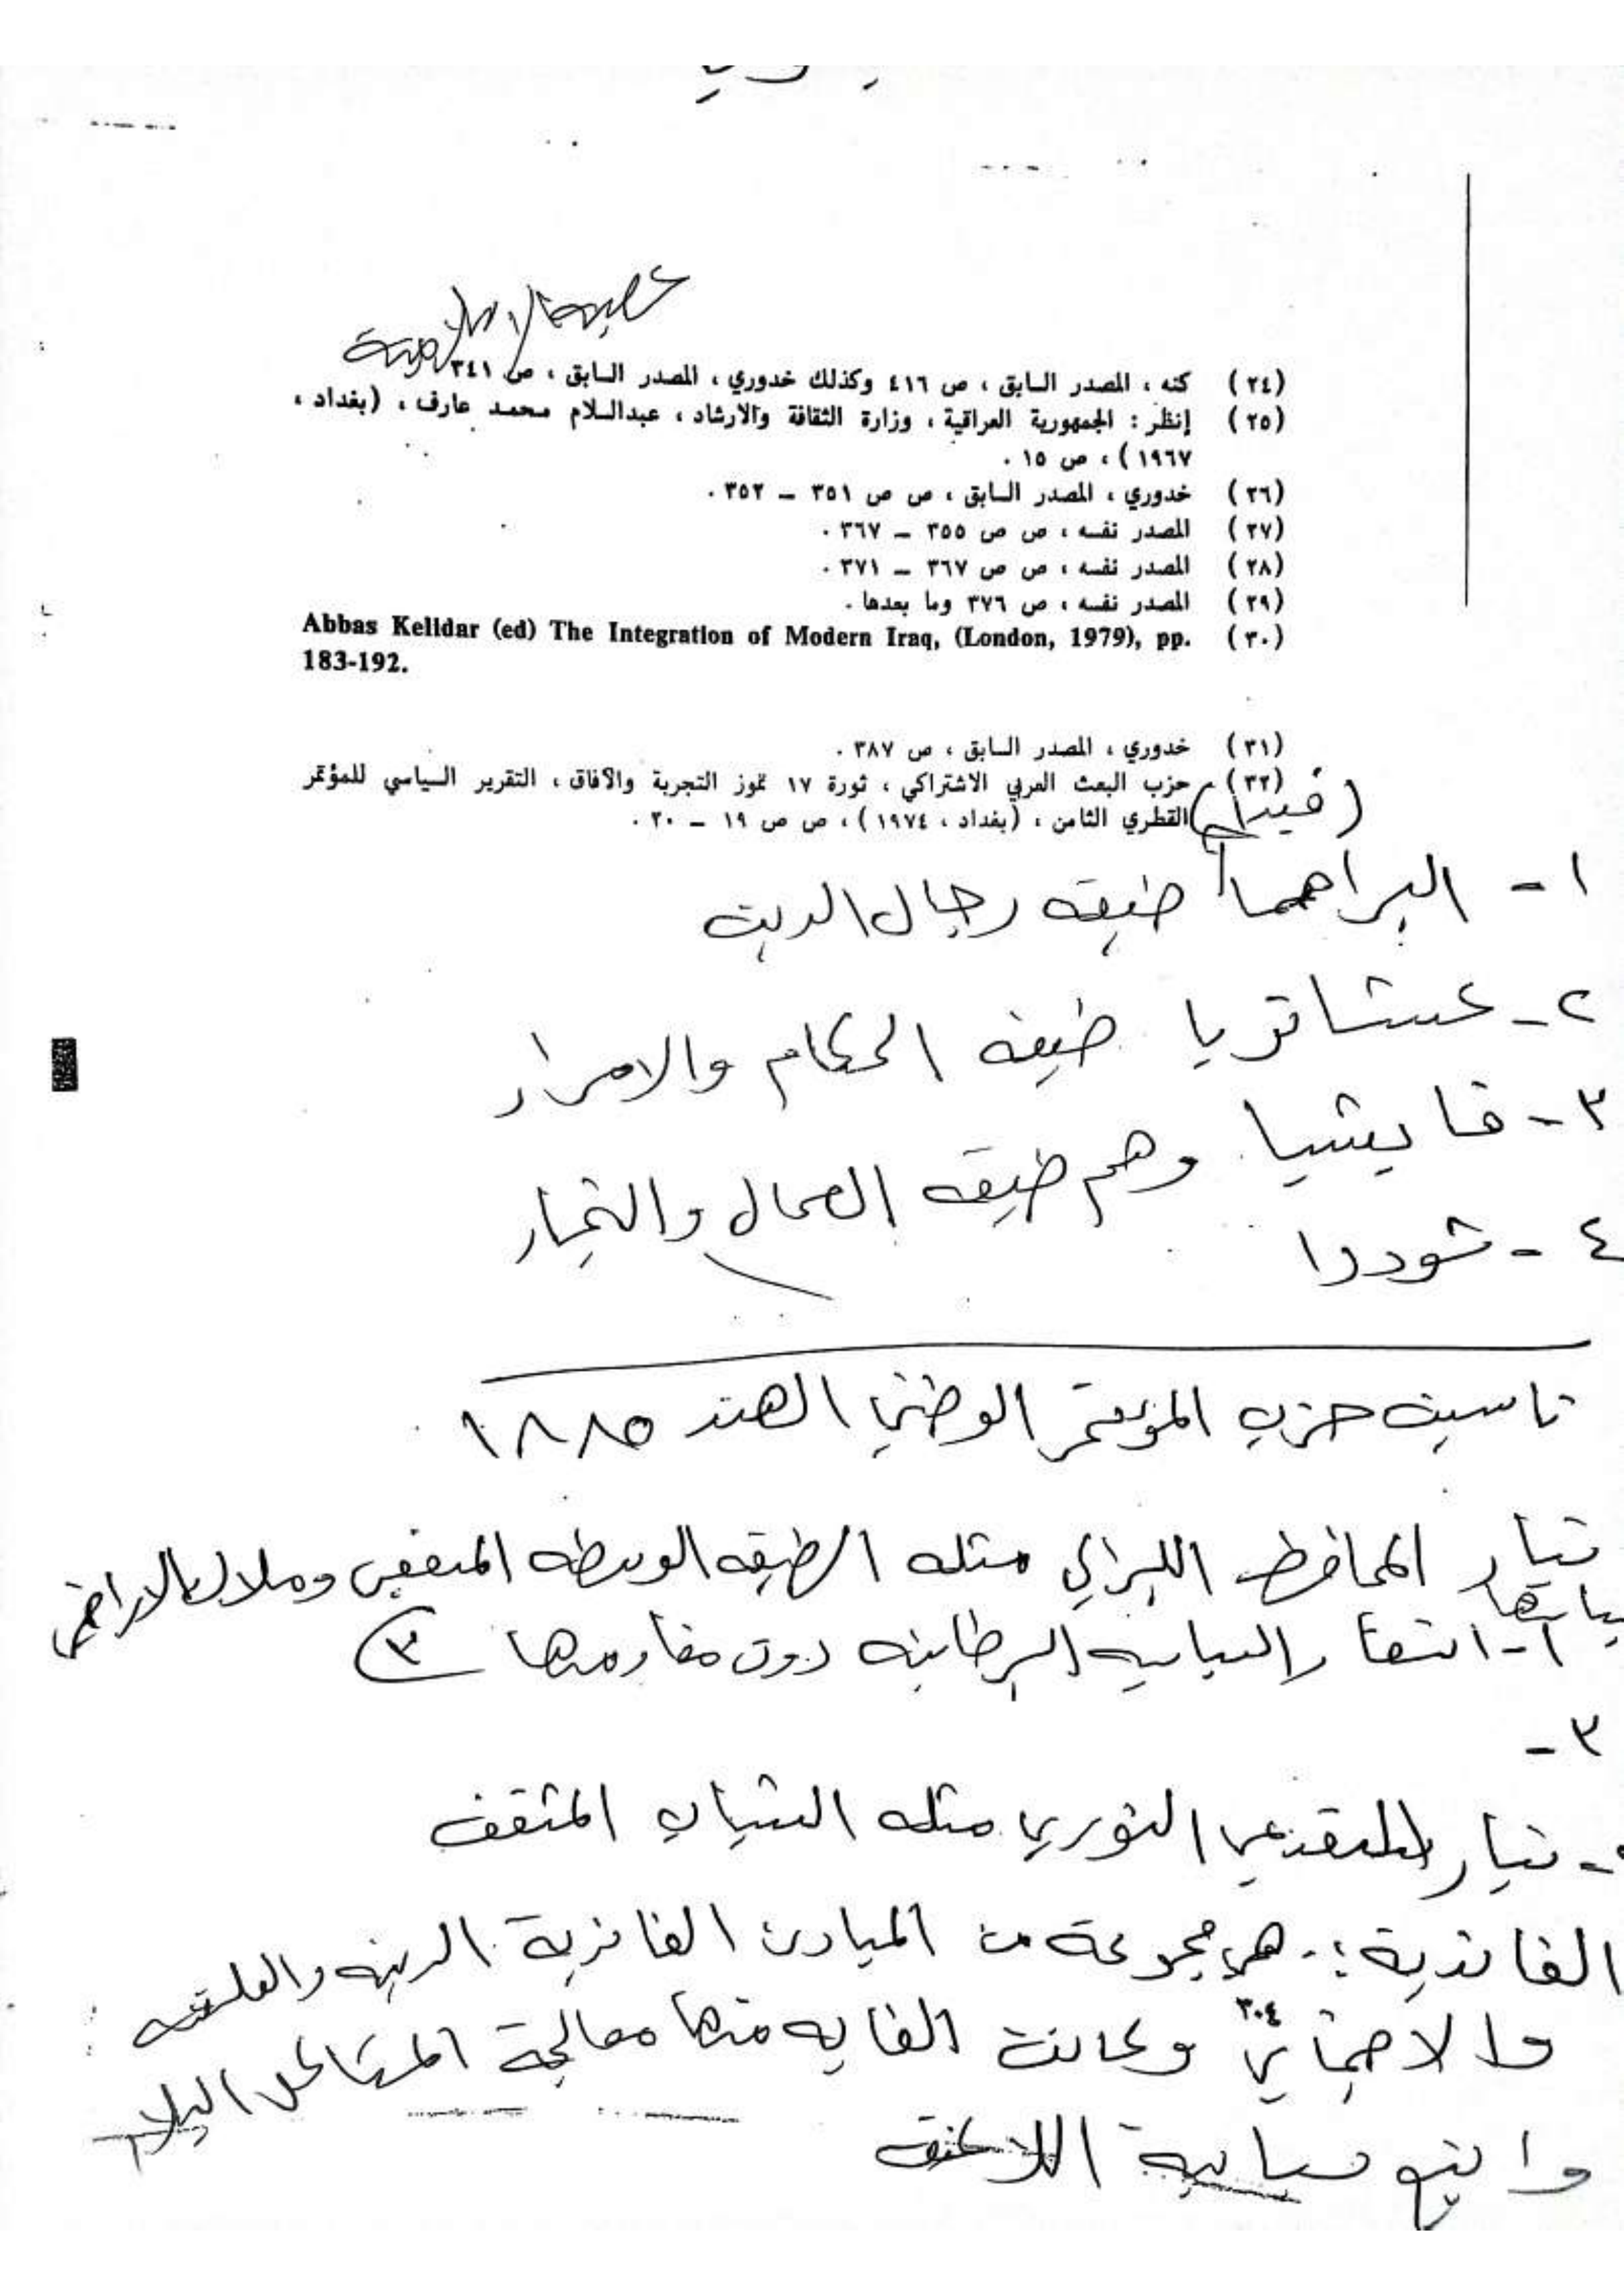 عصبة الامم
(٢٤) كنه ، المصدر السابق ، ص ٤١٦ وكذلك خدوري ، المصدر السابق ، ص ٣٤١
(٢٥) إنظر : الجمهورية العراقية ، وزارة الثقافة والارشاد ، عبدالسلام محمد عارف ، (بغداد ،
١٩٦٧ ) ، ص ١٥ .
(٢٦) خدوري ، المصدر السابق ، ص ص ٣٥١ – ٣٥٢ .
(٢٧) المصدر نفسه ، ص ص ٣٥٥ – ٣٦٧ .
(٢٨) المصدر نفسه ، ص ص ٣٦٧ – ٣٧١ .
(٢٩) المصدر نفسه ، ص ٣٧٦ وما بعدها .
(٣٠) Abbas Kelidar (ed) The Integration of Modern Iraq, (London, 1979), pp.
183-192.
(٣١) خدوري ، المصدر السابق ، ص ٣٨٧ .
(٣٢) حزب البعث العربي الاشتراكي ، ثورة ١٧ تموز التجربة والآفاق ، التقرير السياسي للمؤتمر
القطري الثامن ، (بغداد ، ١٩٧٤ ) ، ص ص ١٩ – ٢٠ .
(فيدا)
١ - البراهما طبقه رجال الدين
٢ - كشاتريا طبقه الحكام والامراء
٣ - فايشيا وهم طبقه العمال والتجار
٤ - شودرا
تاسيس حزب المؤتمر الوطني الهند ١٨٨٥
تيار المحافظ اللبرالي مثله الطبقه الوسطه المثقفين وملاك الاراضي
١ - انتقاد السياسيه البرطانيه دون مقاومتها
٣ -
تيار التقدمي الثوري مثله الشباب المثقف
الغاندية :- هي مجموعة من المبادئ الغانزية الدينه والفلسفه
٣٠٤
والاجتماعي وكانت الغايه منها معالجة المشاكل البلاد
واتبع سياسية اللاعنف